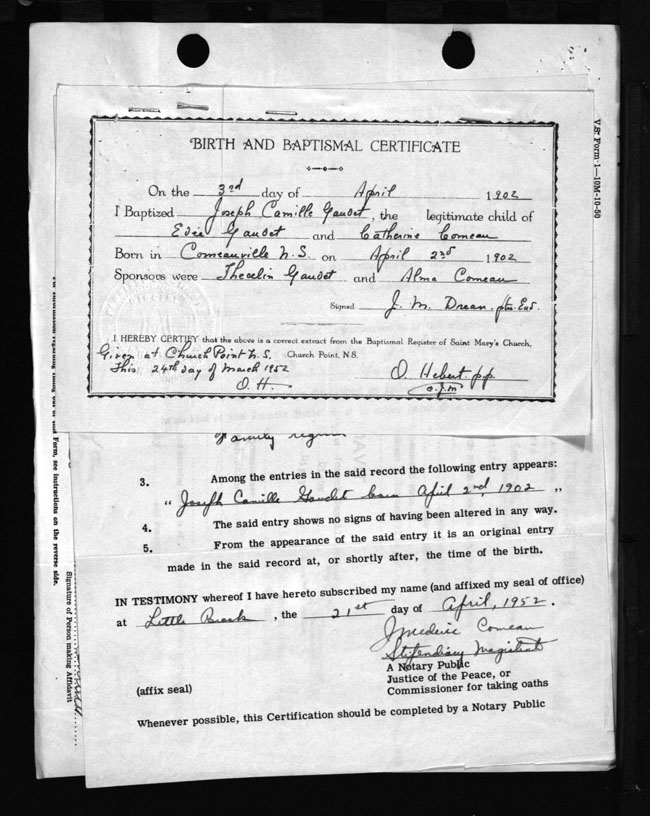 V.S. Form 1—10M-10-50
BIRTH AND BAPTISMAL CERTIFICATE
On the 3rd day of April 1902
I Baptized Joseph Camille Gaudet, the legitimate child of
Gaudet and Catherine Comeau
Born in Comeauville N.S. on April 2nd 1902
Sponsors were Thecelin Gaudet and Alma Comeau
Signed J. M.
I HEREBY CERTIFY that the above is a correct extract from the Baptismal Register of Saint Mary's Church,
Given at Church Point N.S. Church Point, N.S.
This 24th day of March 1952
O. H. O. Hebert p.p.
Family
3. Among the entries in the said record the following entry appears:
" Joseph Camille Gaudet born April 2nd, 1902 "
4. The said entry shows no signs of having been altered in any way.
5. From the appearance of the said entry it is an original entry
made in the said record at, or shortly after, the time of the birth.
IN TESTIMONY whereof I have hereto subscribed my name (and affixed my seal of office)
at Little Brook, the 21st day of April, 1952.
J Mederic Comeau
Stipendiary Magistrate
A Notary Public
Justice of the Peace, or
Commissioner for taking oaths
(affix seal)
Whenever possible, this Certification should be completed by a Notary Public
Form, see instructions on the reverse side.
Signature of Person making Affidavit